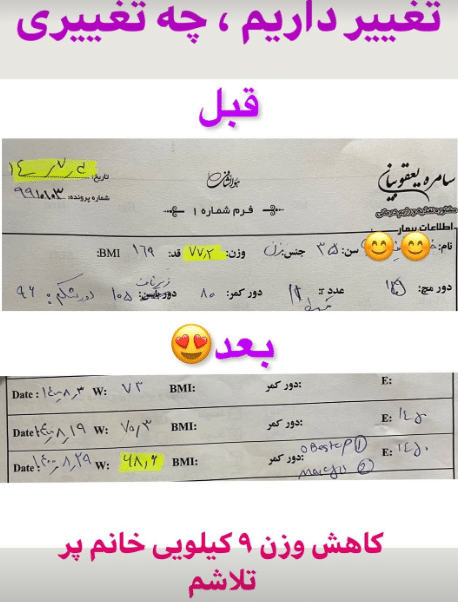 تغییر داریم ، چه تغییری
قبل
سامره یعقوبیان
هوالشافی
تاریخ:
شماره پرونده: ۹۹۱۰۱۰۳
فرم شماره ۱
اطلاعات بیمار
نام: سن: ۳۵ جنس: زن وزن: ۷۷.۲ قد: ۱۶۹ BMI:
دور مچ: عدد T: دور کمر: ۸۰ دور باسن: ۱۰۵ دور شکم: ۹۶
بعد
Date: ۱۴۰۰,۸,۳ W: ۷۳ BMI: دور کمر: E:
Date: ۱۴۰۰,۸,۱۹ W: ۷۰/۳ BMI: دور کمر: E: ۱۴۵۰
Date: ۱۴۰۰,۸,۲۹ W: ۶۸,۶ BMI: دور کمر: E: ۱۴۵۰
کاهش وزن ۹ کیلویی خانم پر
تلاشم